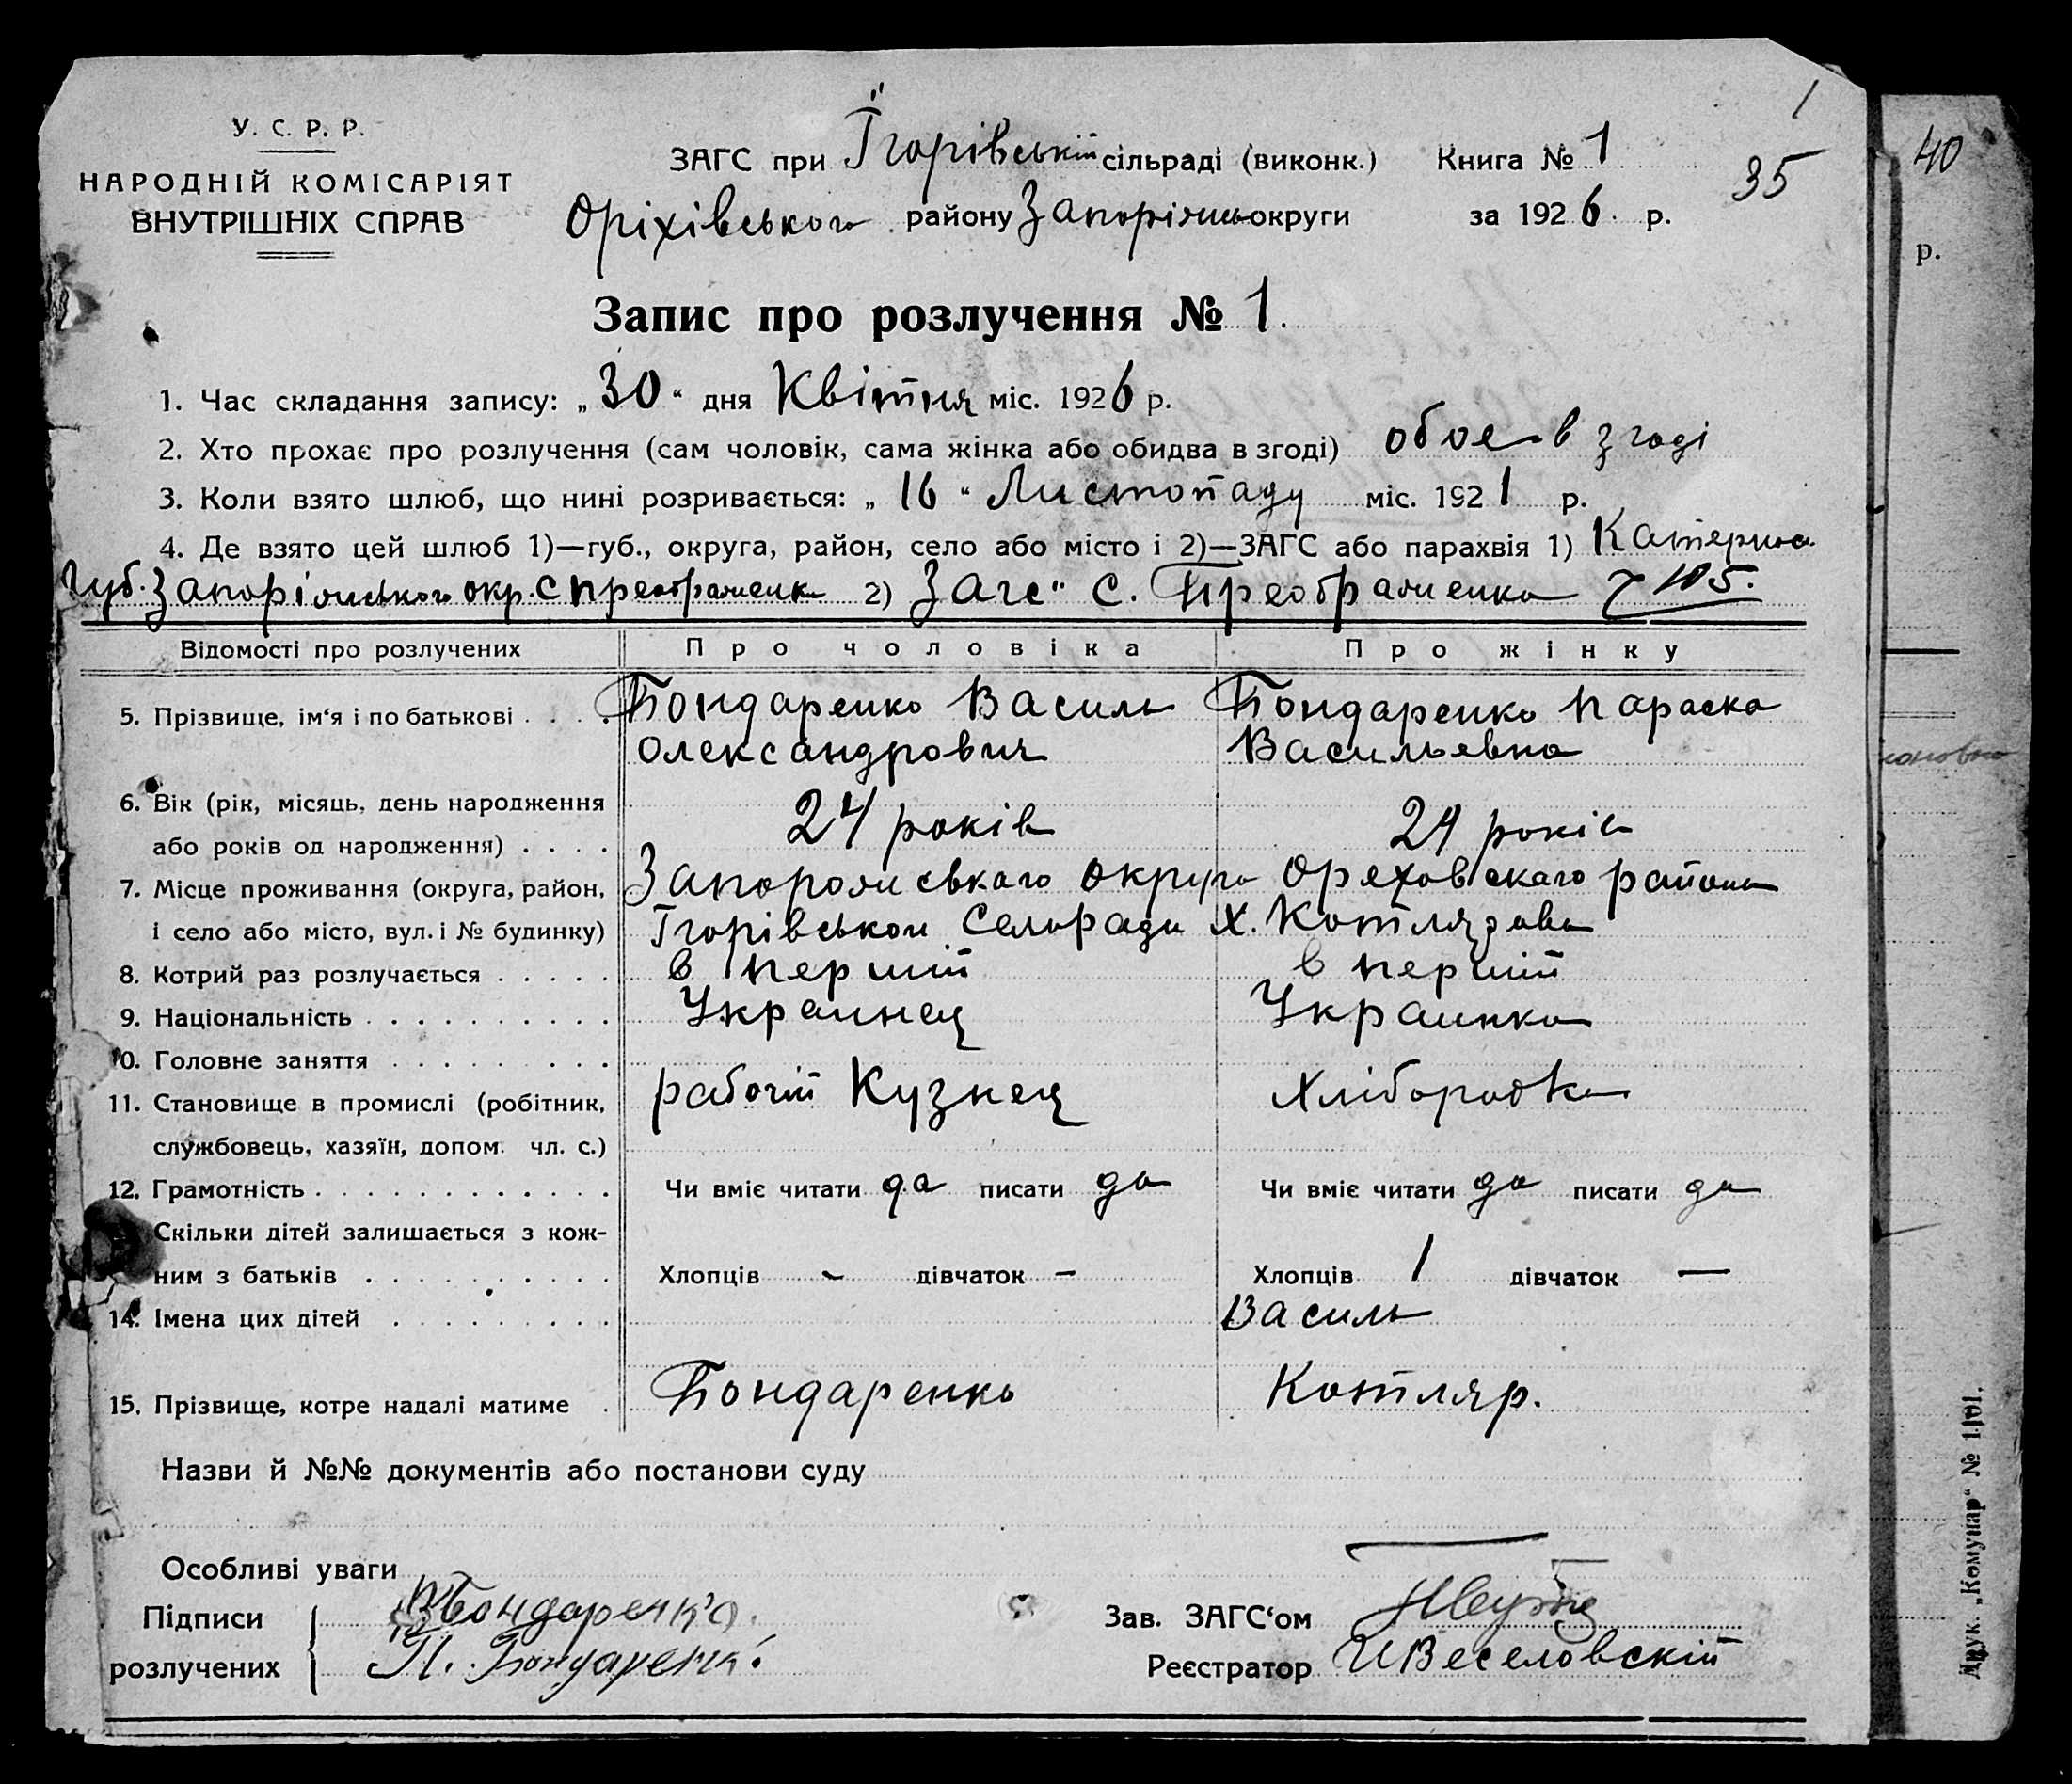 1
У. С. Р. Р.
НАРОДНІЙ КОМІСАРІЯТ
ВНУТРІШНІХ СПРАВ
ЗАГС при Їгорівській сільраді (виконк.) Книга № 1
35
40
Оріхівського району Запоріжськ округи за 1926 р.
р.
Запис про розлучення № 1.
1. Час складання запису: „30“ дня Квітня міс. 1926 р.
2. Хто прохає про розлучення (сам чоловік, сама жінка або обидва в згоді) обое в згоді
3. Коли взято шлюб, що нині розривається: „16“ Листопаду міс. 1921 р.
4. Де взято цей шлюб 1)—губ., округа, район, село або місто і 2)—ЗАГС або парахвія 1) Катерино.
губ. Запоріжського окр. с Преображенка 2) Загс" С. Преображенка 105.
Відомості про розлучених Про чоловіка Про жінку
5. Прізвище, ім'я і по батькові . . . . Бондаренко Василь Бондаренко Параска
Олександрович Васильевна
6. Вік (рік, місяць, день народження
або років од народження) . . . . 24 років 24 років
7. Місце проживання (округа, район, Запорожсьkаго округа Ореховскаго района
і село або місто, вул. і № будинку) Їгорівськои Селоради Х. Котлярова
8. Котрий раз розлучається . . . . . в перший в перший
9. Національність . . . . . . . . . . Украинец Украинка
10. Головне заняття . . . . . . . . .
11. Становище в промислі (робітник, рабочій Кузнец Хліборобка
службовець, хазяїн, допом. чл. с.)
12. Грамотність . . . . . . . . . . . . Чи вміє читати да писати да Чи вміє читати да писати да
Скільки дітей залишається з кож-
ним з батьків . . . . . . . . . . Хлопців - дівчаток - Хлопців 1 дівчаток —
14. Імена цих дітей . . . . . . . . . Василь
15. Прізвище, котре надалі матиме . Бондаренко Котляр.
Назви й №№ документів або постанови суду
Особливі уваги
Підписи
розлучених
Бондаренко.
П. Бондаренк.
Зав. ЗАГС'ом
Реєстратор И Веселовскій
Друк. „Комунар“ № 1101.